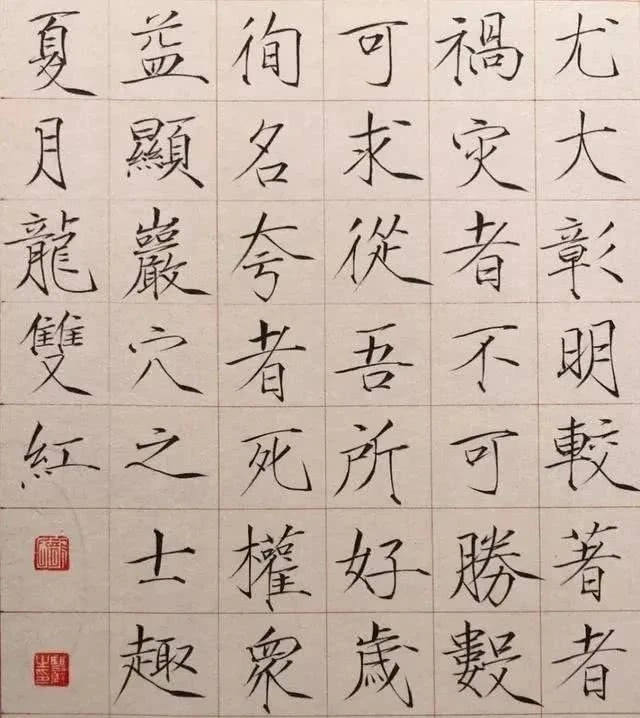 尤大彰明較著者
禍灾者不可勝數
可求從吾所好歲
徇名夸者死權眾
益顯巖穴之士趣
夏月龍雙紅